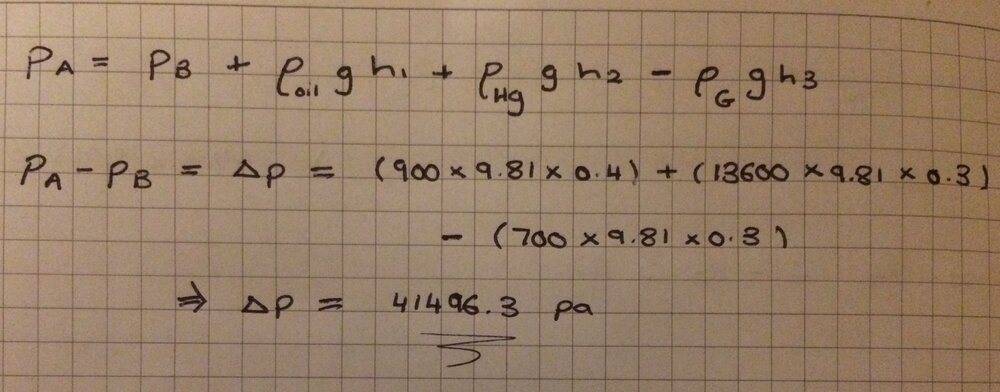 PA = PB + ρoil g h1 + ρHg g h2 - ρG g h3
PA - PB = Δp = (900 × 9.81 × 0.4) + (13600 × 9.81 × 0.3)
- (700 × 9.81 × 0.3)
⇒ Δp = 41496.3 pa